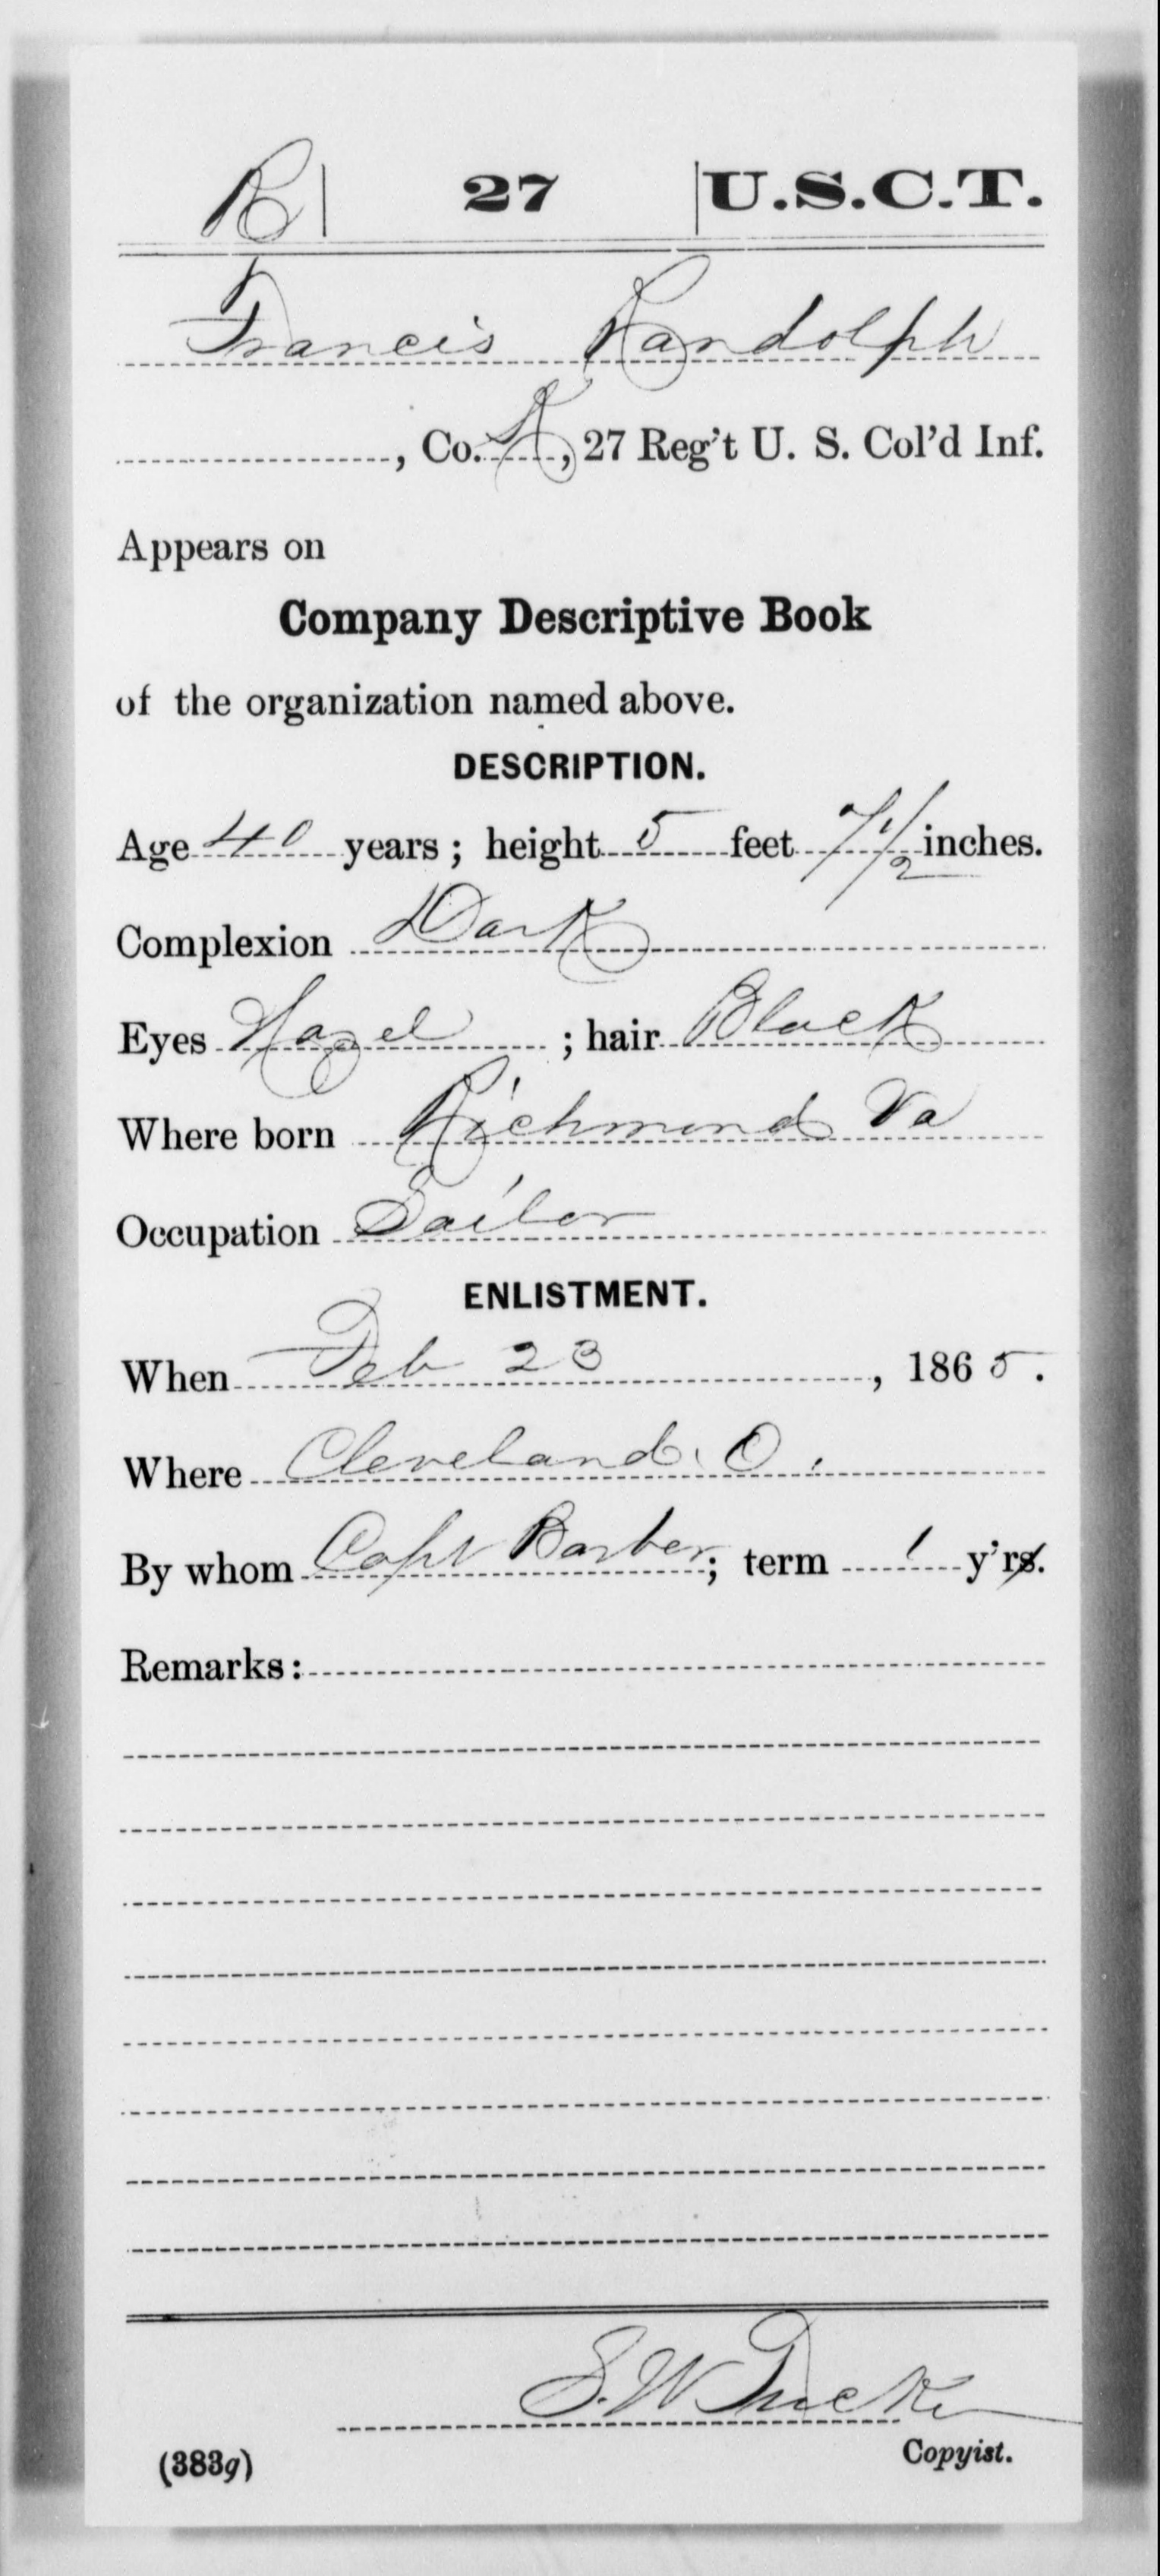 R | 27 | U.S.C.T.
Francis Randolph
, Co. K, 27 Reg't U. S. Col'd Inf.
Appears on
Company Descriptive Book
of the organization named above.
DESCRIPTION.
Age 40 years; height 5 feet 7 1/2 inches.
Complexion Dark
Eyes Hazel ; hair Black
Where born Richmond Va
Occupation Sailor
ENLISTMENT.
When Feb 23, 1865.
Where Cleveland. O.
By whom Capt Barber; term 1 y'rs.
Remarks:
S. W. Tucker
Copyist.
(383g)